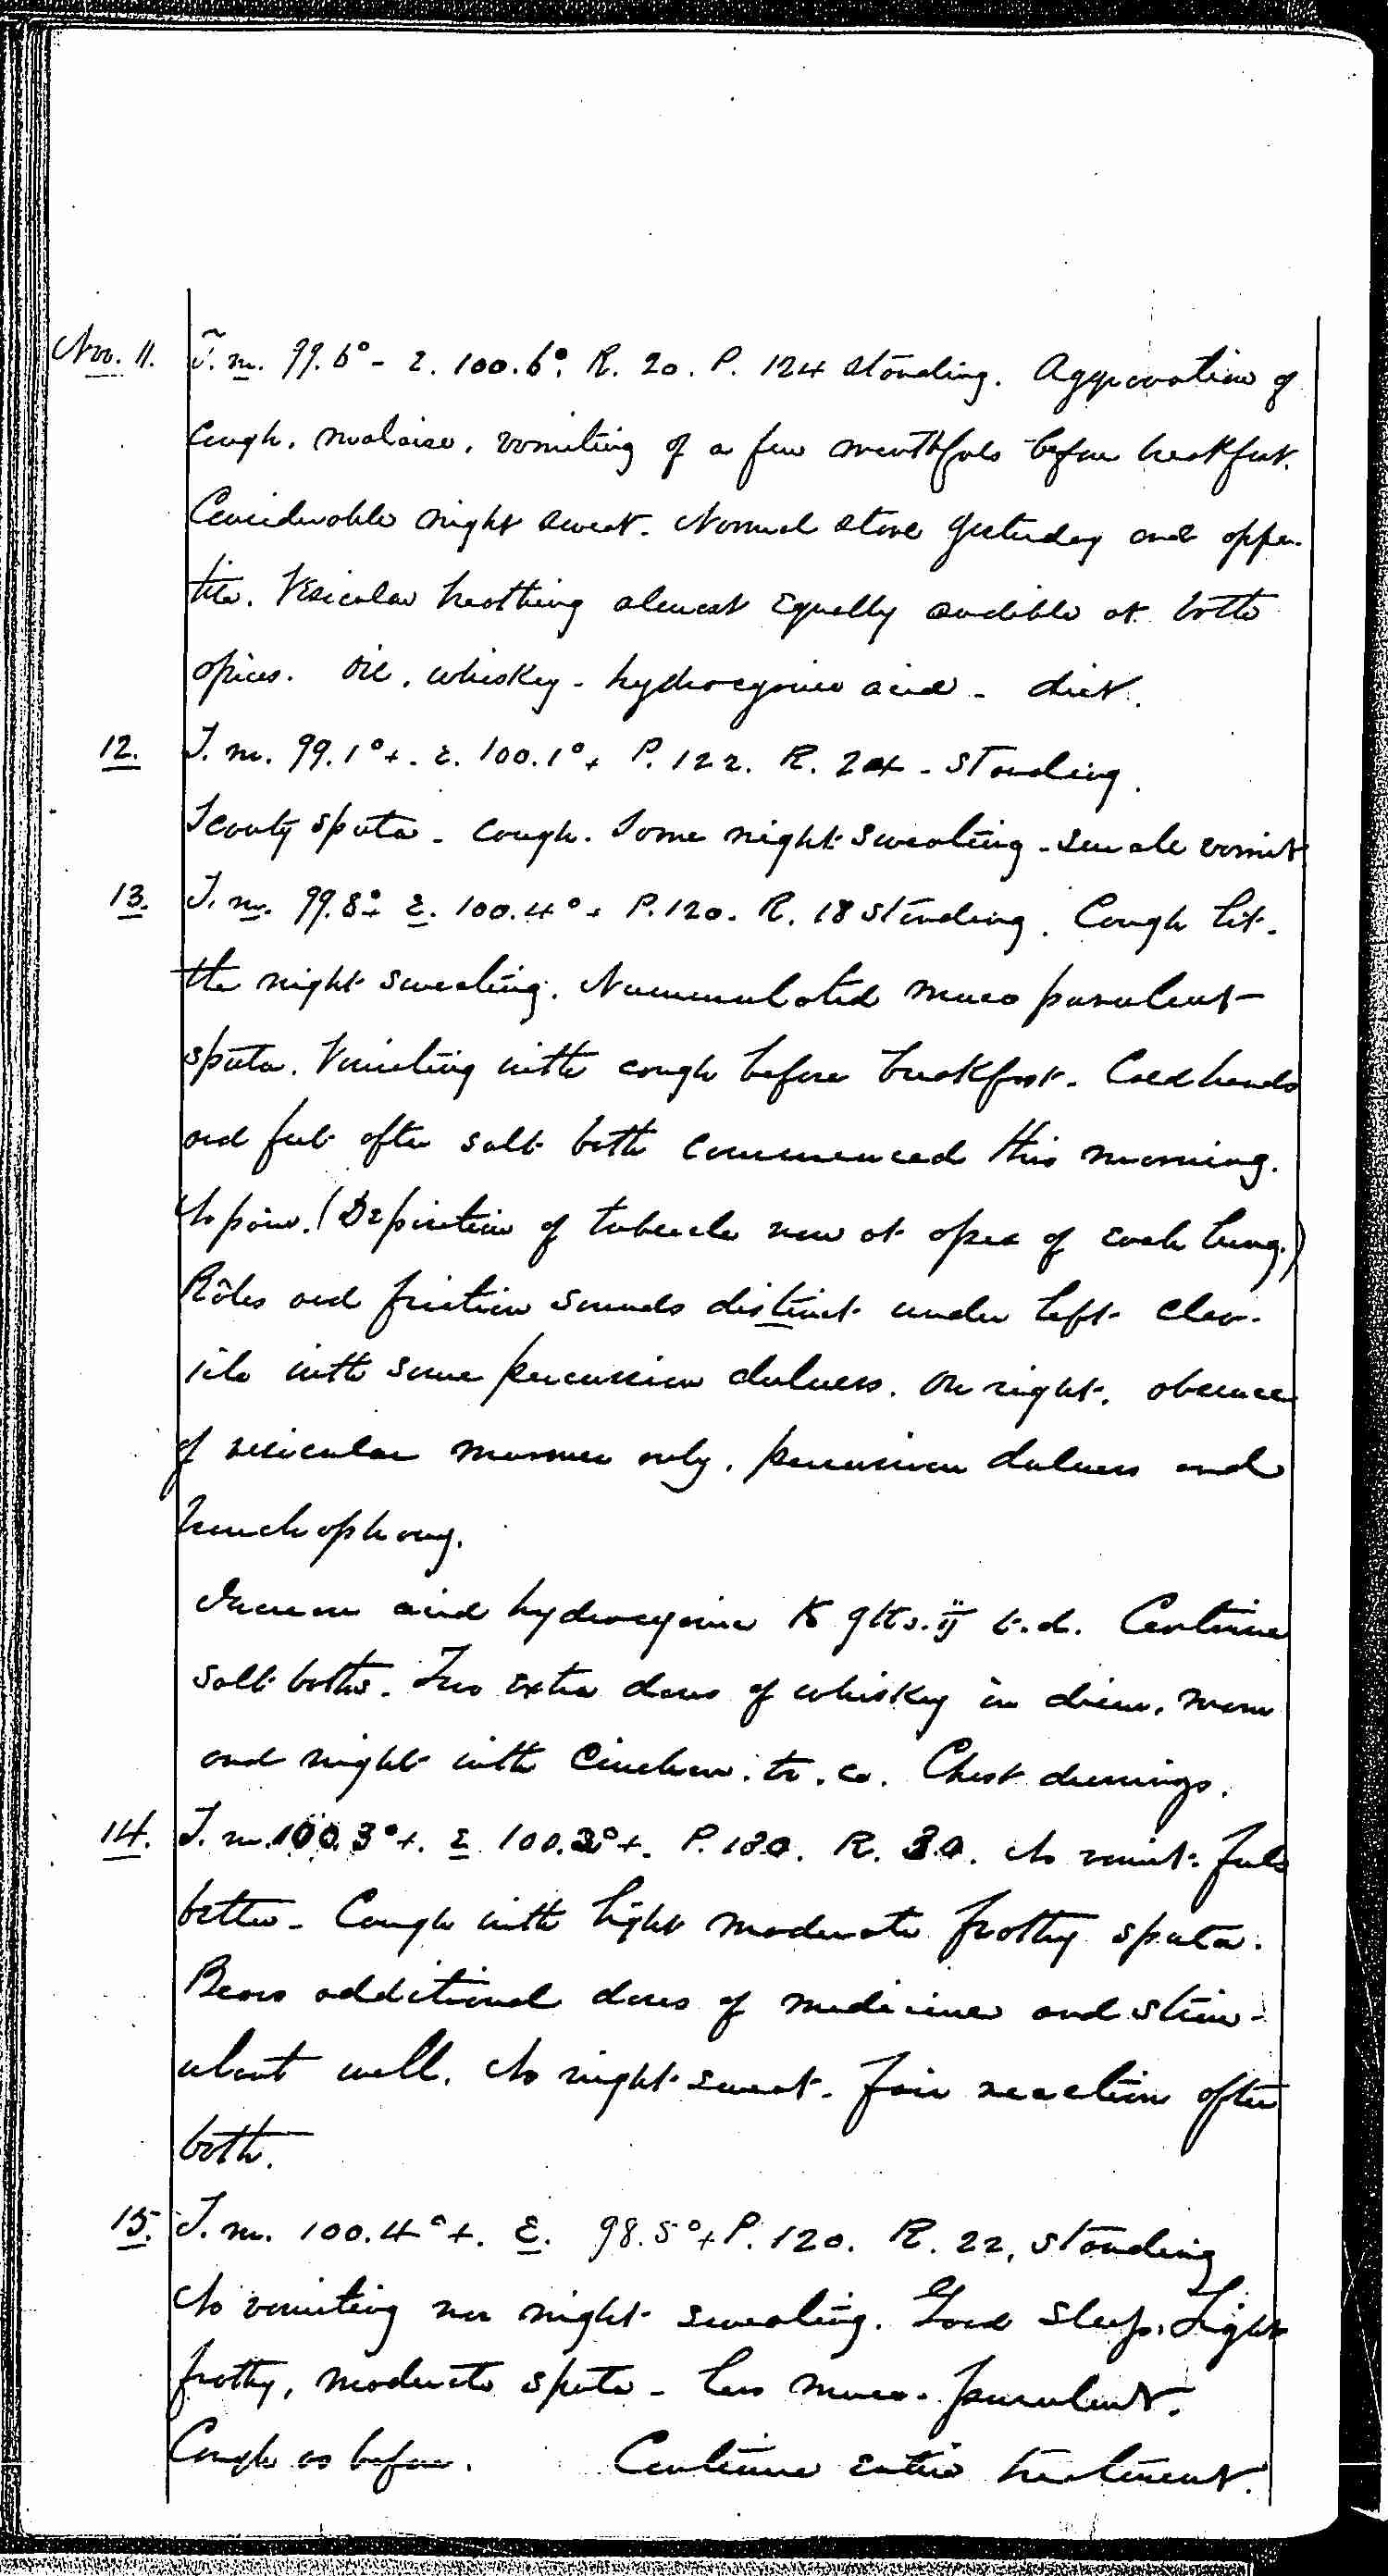 Nov. 11. T. m. 99.6° - E. 100.6°. R. 20. P. 124 standing. Aggravation of
cough, malaise, vomiting of a few mouthfuls before breakfast.
Considerable night sweat. Normal stool yesterday and appe-
tite. Vesicular breathing almost equally audible at both
apices. Oil, whiskey - hydrocyanic acid - diet.
12. T. m. 99.1°+. E. 100.1°+ P. 122. R. 24 - standing.
Scanty sputa - cough. Some night sweating - small vomit
13. T. m. 99.8°+ E. 100.4°+ P. 120. R. 18 standing. Cough lit-
tle night sweating. Nummulated muco purulent
sputa. Vomiting with cough before breakfast. Cold hands
and feet after salt bath commenced this morning.
No pain. (Deposition of tubercle now at apex of each lung.)
Râles and friction sounds distinct under left clav-
icle with some percussion dulness. On right, absence
of vesicular murmur only, percussion dulness and
bronchophony.
Increase acid hydrocyanic to gtts. ij t.d. Continue
salt baths. Two extra doses of whiskey in diem, morn
and night with Cinchon. tr. co. Chest
14. T. m. 100.3°+. E 100.2°+. P. 130. R. 30. No vomit. Feels
better - Cough with light moderate frothy sputa.
Bears additional doses of medicines and stim-
ulant well. No night sweat. Fair reaction after
bath.
15. T. m. 100.4°+. E. 98.5°+ P. 120. R. 22, standing
No vomiting nor night sweating. Good sleep. Light
frothy, moderate sputa - less muco-purulent.
Cough as before. Continue entire treatment.